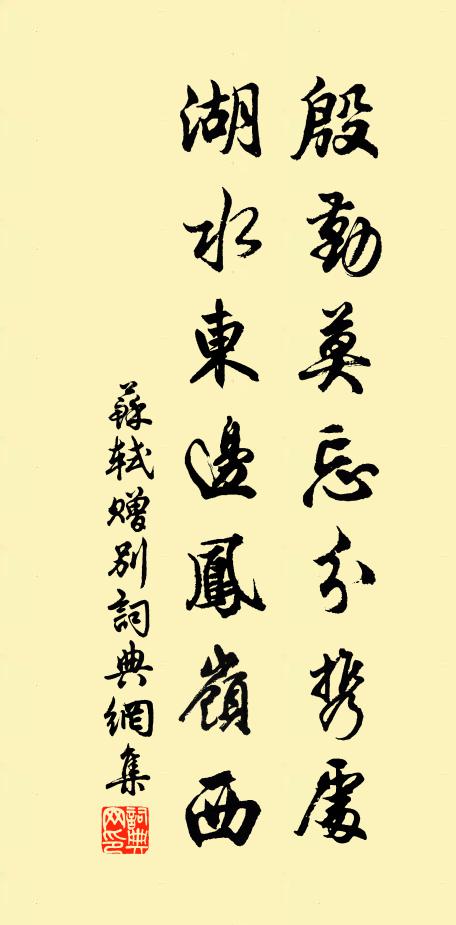 殷勤莫忘分携處
湖水東邊鳳嶺西
蘇軾贈別詞典網集
詞典網印